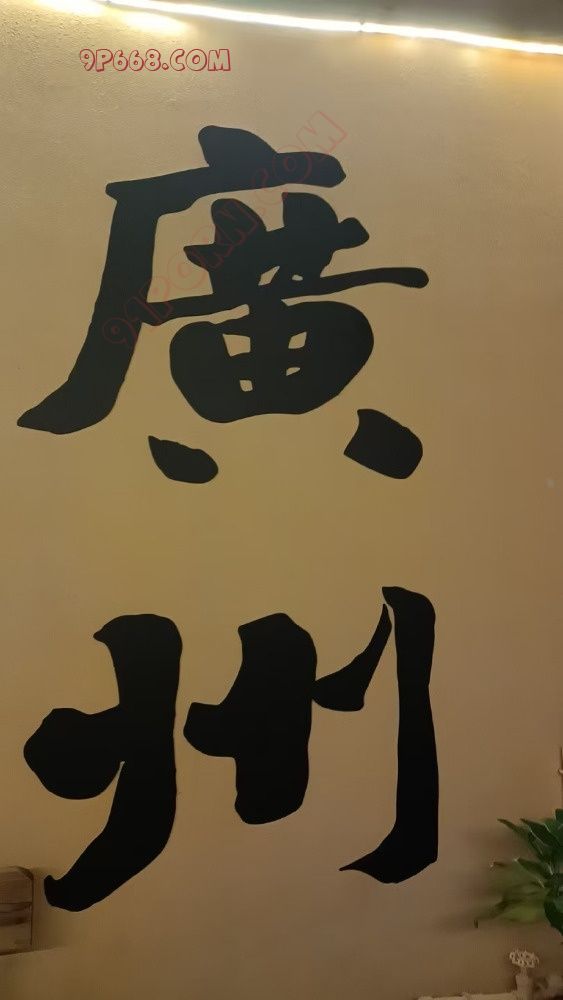 9P668.COM
91PORN.COM
廣
州